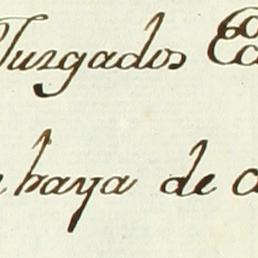 Juzgados
haya de